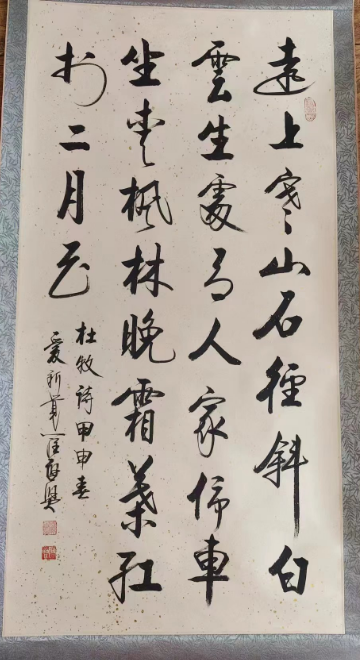 遠上寒山石徑斜白
雲生處有人家停車
坐愛楓林晚霜葉紅
於二月花
杜牧詩甲申春
愛新覺羅